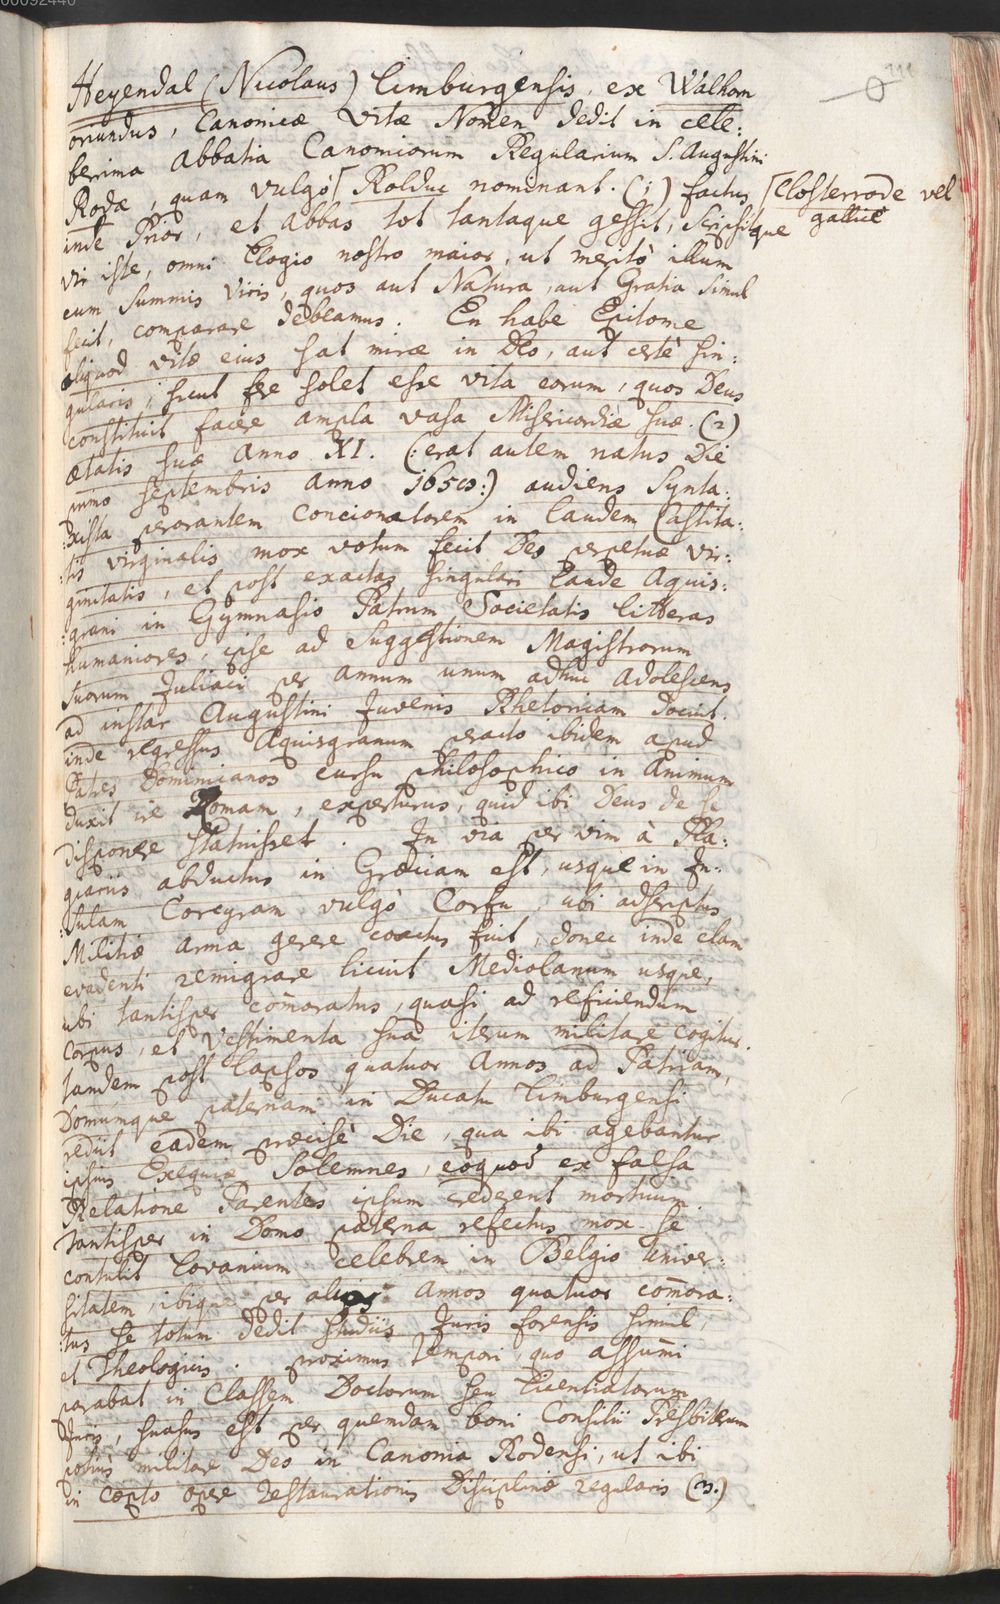 00092440
111
Heyendal (Nicolaus) Limburgensis, ex Walhorn
oriundus, Canonicæ Vitæ Nomen dedit in cele:
berrima Abbatia Canonicorum Regularium S. Augustini
Rodæ, quam vulgò [ Rolduc nominant. (1) factus [Closterrode vel
gallicè
inde Prior, et Abbas tot tantaque gessit, scripsitque
vir iste, omni Elogio nostro maior, ut meritò illum
cum summis Viris, quos aut Natura, aut Gratia simul
fecit, comparare debeamus. En habe Epitome
aliquod vitæ eius sat miræ in Deo, aut certè sin:
gularis, sicut fere solet esse vita eorum, quos Deus
constituit facere ampla vasa Misericordiæ suæ. (2)
ætatis suæ Anno XI. (: erat autem natus Die
primo Septembris anno 1658 :) audiens Synta:
xista perorantem Concionatorem in laudem Castita:
:tis virginalis mox votum fecit Deo perpetuæ vir:
ginitatis, et post exactas singulari laude Aquis:
:grani in Gymnasio Patrum Societatis litteras
humaniores, ipse ad suggestionem Magistrorum
suorum Juliaci per annum unum adhuc adolescens
ad instar Augustini Juvenis Rhetoricam docuit.
inde regressus Aquisgranum peracto ibidem apud
Patres Dominicanos cursu philosophico in Animum
duxit ire Romam, experturus, quid ibi Deus de se
disponere statuisset. In via per vim à Pla:
giariis abductus in Græciam est, usque in In:
:sulam Corcyram vulgò Corfu, ubi adscriptus
Militiæ arma gerere coactus fuit, donec inde clam
evadenti remigrare licuit Mediolanum usque,
ubi tantisper com̄oratus, quasi ad reficiendum
corpus, et Vestimenta sua iterum militare cogitur.
tandem post lapsos quatuor Annos ad Patriam,
Domumque paternam in Ducatu Limburgensi
rediit eadem præcisè Die, qua ibi agebantur
ipsius Exequiæ solemnes, eoquod ex falsa
Relatione Parentes ipsum crederent mortuum
tantisper in Domo paterna refectus mox se
contulit Lovanium celebrem in Belgio Univer:
sitatem, ibique per alios annos quatuor com̄ora:
:tus se totum dedit studiis Juris forensis simul,
et Theologicis. proximus tempori, quo assumi
parabat in Classem Doctorum seu Licentiatorum
Juris, suasus est per quemdam boni Consilii Presbiterum
potiùs militare Deo in Canonia Rodensi, ut ibi
in cœpto opere restaurationis Disciplinæ regularis (3.)